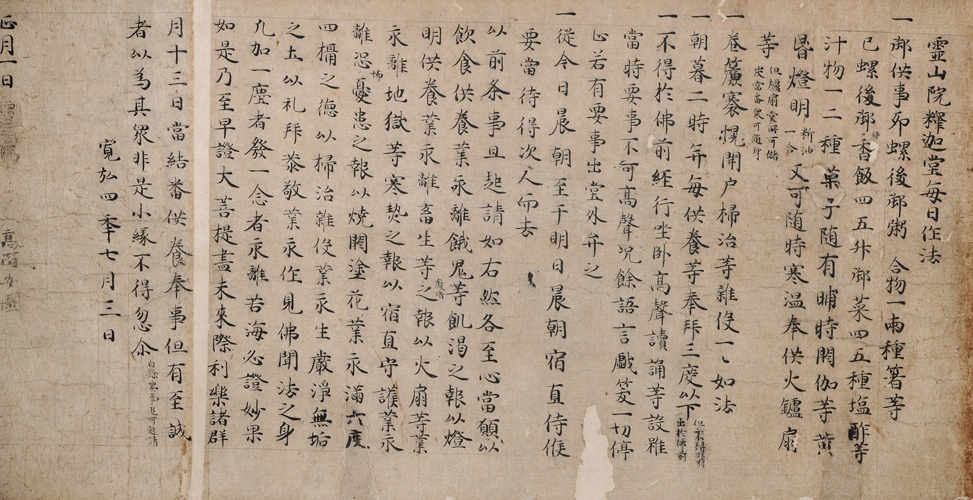 霊山院釋迦堂毎日作法
一御供事卯螺後御粥 合物一兩種箸等
巳螺後御香飯四五廾御菜四五種塩酢等
汁物一二種菓子随有晡時閼伽等黄
昏燈明新油一合又可随時寒温奉供火鑪扇
等但爐扇可随身
一巻簾褰幌開户掃治等雜役一々如法
朝暮二時并毎供養等奉拝三度以下
一不得於佛前經行坐卧高聲讀誦等設雖
當時要事不可高聲况餘語言戯笑一切停
止若有要事出堂外弁之
一從今日晨朝至于明日晨朝宿直侍候
要當待得次人而去
以前条事且起請如右然各至心當願以
飲食供養業永離餓鬼等飢渇之報以燈
明供養業永離畜生等之報以火扇等業
永離地獄等寒熱之報以宿直守護業永
離恐憂患之報以焼閼塗花業永滿六度
四攝之德以掃治雜役業永生嚴浄無垢
之土以礼拝恭敬業永作見佛聞法之身
凢加一塵者發一念者永離苦海必證妙果
如是乃至早證大菩提盡未來際利樂諸群
月十三日當結番供養奉事但有至誠
者以為其衆非是小縁不得忽尒
寛弘四季七月三日
正月一日